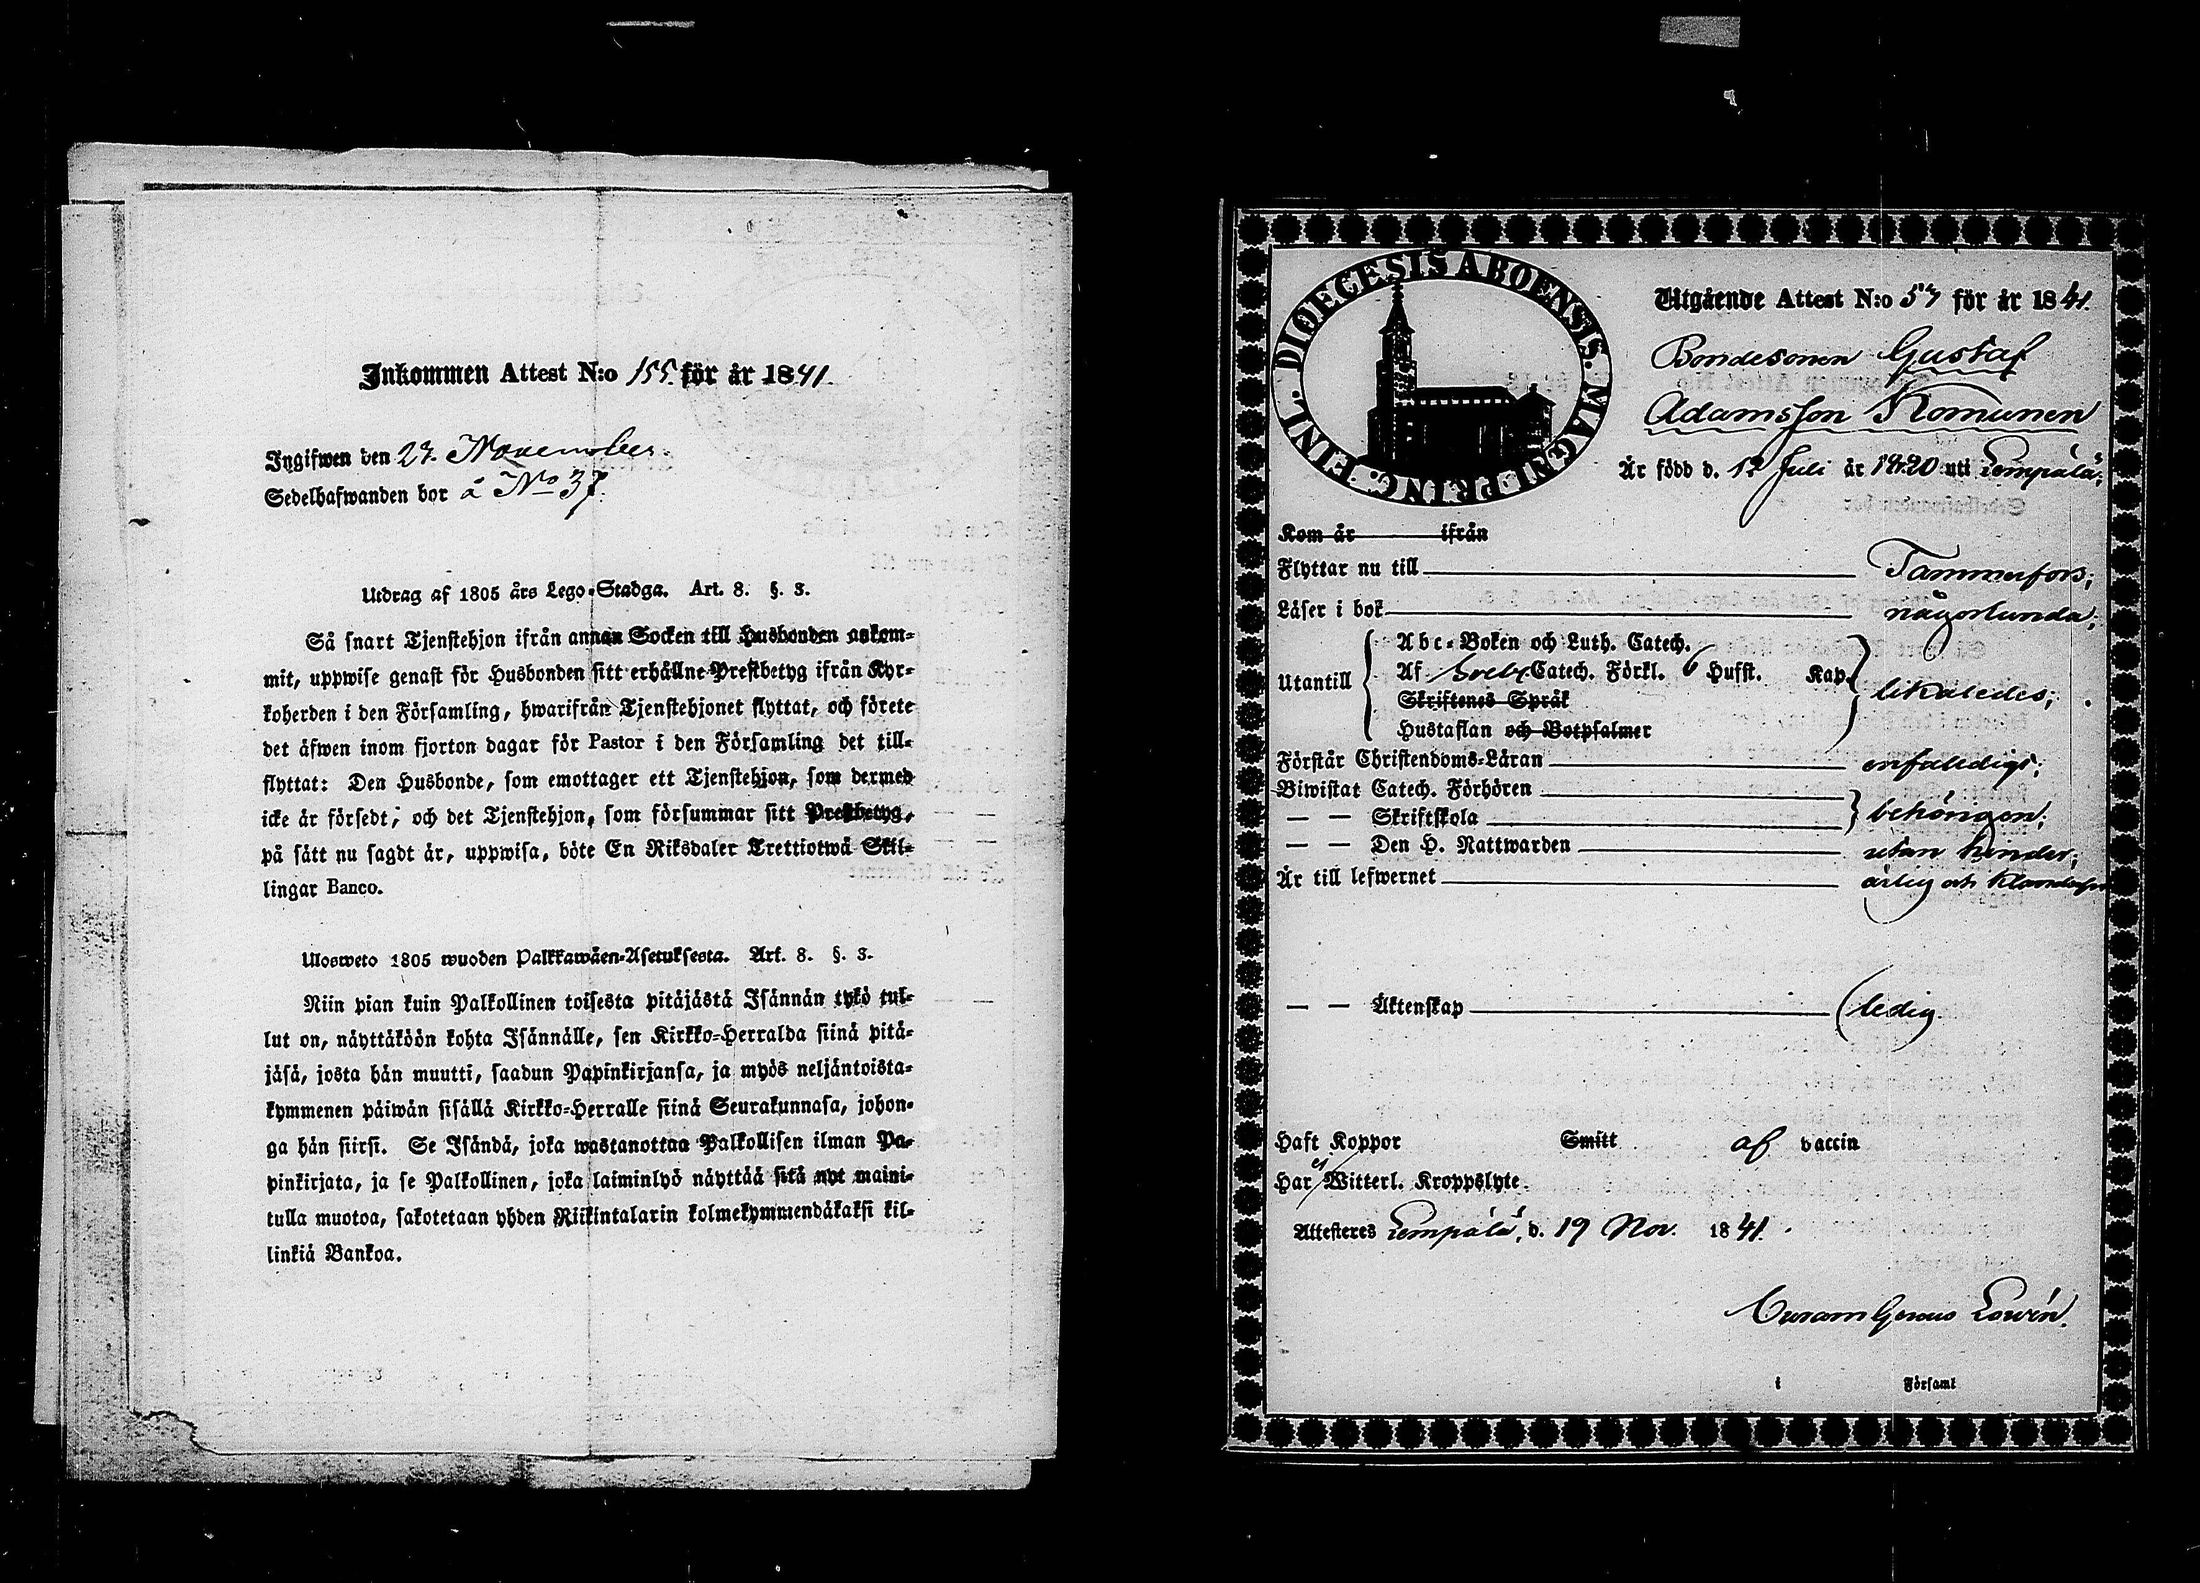 Inkommen Attest N:o 155. för år 1841.
Ingifwen den 27. November.
Sedelhafwanden bor å No 37.
Utdrag af 1805 års Lego-Stadga. Art. 8. §. 3.
Så snart Tjenstehjon ifrån annan Socken till Husbonden ankom-
mit, uppwise genast för Husbonden sitt erhållne Prestbetyg ifrån Kyr-
koherden i den Församling, hwarifrån Tjenstehjonet flyttat, och förete
det äfwen inom fjorton dagar för Pastor i den Församling det till-
flyttat: Den Husbonde, som emottager ett Tjenstehjon, som dermed
icke är försedt, och det Tjenstehjon, som försummar sitt Prestbetyg,
på sätt nu sagdt är, uppwisa, böte En Riksdaler Trettiotwå Skil-
lingar Banco.
Ulosweto 1805 wuoden Palkkawäen-Asetuksesta. Art. 8. §. 3.
Niin pian kuin Palkollinen toisesta pitäjästä Isännän tykö tul-
lut on, näyttäköön kohta Isännälle, sen Kirkko-Herralda siinä pitä-
jäsä, josta hän muutti, saadun Papinkirjansa, ja myös neljäntoista-
kymmenen päiwän sisällä Kirkko-Herralle siinä Seurakunnasa, johon-
ga hän siirsi. Se Isändä, joka wastanottaa Palkollisen ilman Pa-
pinkirjata, ja se Palkollinen, joka laiminlyö näyttää sitä nyt maini-
tulla muotoa, sakotetaan yhden Riikintalarin kolmekymmendäkaksi kil-
linkiä Bankoa.
DIOECESIS ABOENSIS. MAGNI PRINC. FINL.
Utgående Attest N:o 57 för år 1841.
Bondesonen Gustaf
Adamsson Komunen
Är född d. 12 Juli år 1820 uti Lempälä;
Kom år ifrån
Flyttar nu till Tammerfors;
Läser i bok någorlunda;
Utantill
Abc-Boken och Luth. Catech.
Af Sveb. Catech. Förkl. 6 Hufst. Kap.
Skriftenes Språk
likaledes;
Hustaflan och Botpsalmer
Förstår Christendoms-Läran enfaldigt;
Biwistat Catech. Förhören
— — Skriftskola behörigen;
— — Den H. Nattwarden utan hinder;
Är till lefwernet ärlig och klanderfri
— — Äktenskap ledig.
Haft Koppor Smitt af vaccin
Har ej Witterl. Kroppslyte
Attesteres Lempälä, d. 19 Nov. 1841.
Lowén.
i Församl